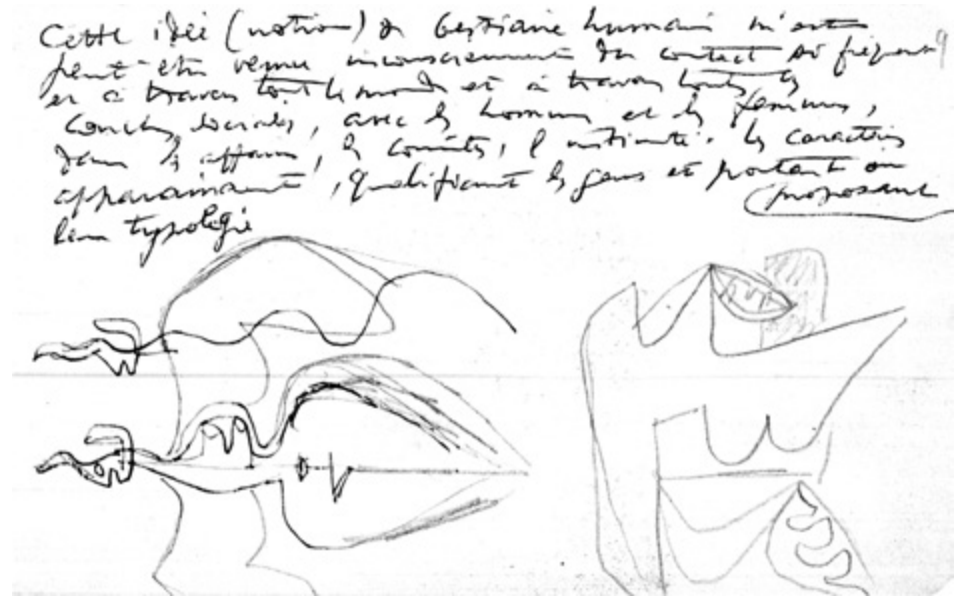 Cette idée (notion) de bestiaire humain m'est
peut-être venu inconsciemment du contact si fréquent
et à travers tout le monde et à travers toutes les
couches sociales, avec les hommes et les femmes,
dans les affaires, les comités, l'intimité. Les caractères
apparaissent, qualifiant les gens et portant ou
proposant
leur typologie